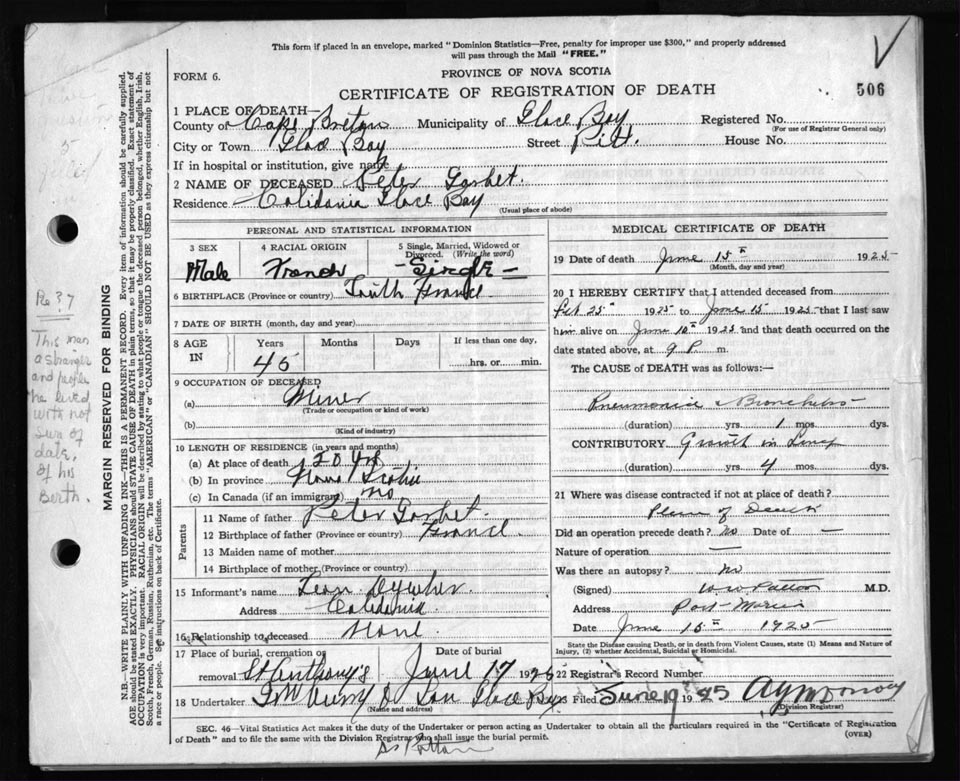 This form if placed in an envelope, marked "Dominion Statistics—Free, penalty for improper use $300," and properly addressed
will pass through the Mail "FREE."
FORM 6.
PROVINCE OF NOVA SCOTIA
CERTIFICATE OF REGISTRATION OF DEATH
506
1 PLACE OF DEATH—
County of Cape Breton Municipality of Glace Bay Registered No.
(For use of Registrar General only)
City or Town Glace Bay Street Pitt. House No.
If in hospital or institution, give name
2 NAME OF DECEASED Peter Gosbet.
Residence Caledonia Glace Bay
(Usual place of abode)
PERSONAL AND STATISTICAL INFORMATION
3 SEX
Male
4 RACIAL ORIGIN
French
5 Single, Married, Widowed or
Divorced. (Write the word)
- Single -
6 BIRTHPLACE (Province or country) France
7 DATE OF BIRTH (month, day and year)
8 AGE
IN
Years Months Days If less than one day,
45
hrs. or min.
9 OCCUPATION OF DECEASED
(a) Miner
(Trade or occupation or kind of work)
(b)
(Kind of industry)
10 LENGTH OF RESIDENCE (in years and months)
(a) At place of death 20 yrs
(b) In province Nova Scotia
(c) In Canada (if an immigrant) no
Parents
11 Name of father Peter Gosbet.
12 Birthplace of father (Province or country) France.
13 Maiden name of mother
14 Birthplace of mother (Province or country)
15 Informant's name Leon
Address Caledonia
16 Relationship to deceased None
17 Place of burial, cremation or
removal St Anthony's
Date of burial
June 17 1925
18 Undertaker & Son Glace Bay
(Name and address)
MEDICAL CERTIFICATE OF DEATH
19 Date of death June 15th 1925
(Month, day and year)
20 I HEREBY CERTIFY that I attended deceased from
Feb 25 1925 to June 15 1925 that I last saw
him alive on June 10th 1925 and that death occurred on
date stated above, at 9 P. m.
The CAUSE of DEATH was as follows:—
Pneumonia & Bronchitis
(duration) yrs. 1 mos. dys.
CONTRIBUTORY Growth in Lung
(duration) yrs. 4 mos. dys.
21 Where was disease contracted if not at place of death?
Place of Death
Did an operation precede death? No Date of —
Nature of operation —
Was there an autopsy? No
(Signed) W W Patton M.D.
Address Port Morien
Date June 15th 1925
State the Disease causing Death, or in Death from Violent Causes, state (1) Means and Nature of
Injury, (2) whether Accidental, Suicidal or Homicidal.
22 Registrar's Record Number
23 Filed June 19 1925
(Division Registrar)
SEC. 46—Vital Statistics Act makes it the duty of the Undertaker or person acting as Undertaker to obtain all the particulars required in the "Certificate of Registration
of Death" and to file the same with the Division Registrar who shall issue the burial permit.
(OVER)
Dr Patton
MARGIN RESERVED FOR BINDING
N.B.—WRITE PLAINLY WITH UNFADING INK—THIS IS A PERMANENT RECORD. Every item of information should be carefully supplied.
AGE should be stated EXACTLY. PHYSICIANS should STATE CAUSE OF DEATH in plain terms, so that it may be properly classified. Exact statement of
OCCUPATION is very important. RACIAL ORIGIN will be described by stating to what people or tongue the deceased person belonged, whether English, Irish,
Scotch, French, German, Russian, Ruthenian, etc. The terms "AMERICAN" or "CANADIAN" SHOULD NOT BE USED as they express citizenship but not
a race or people. See instructions on back of Certificate.
Re ? 7
This man
a stranger
and people
he lived
with not
sure of
date,
of his
Berth.